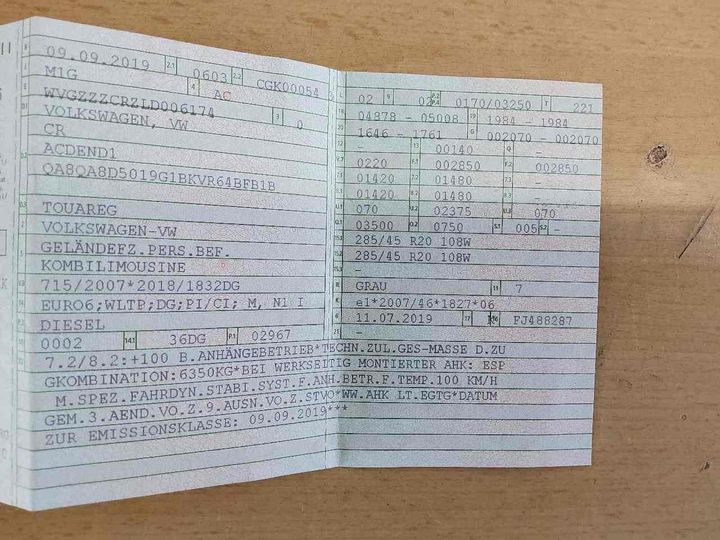 09.09.2019 2.1 0603 2.2 CGK00054
M1G 4 AC
WVGZZZCRZLD006174 3 0
VOLKSWAGEN, VW
CR
ACDEND1
QA8QA8D5019G1BKVR64BFB1B
TOUAREG
VOLKSWAGEN-VW
GELÄNDEFZ.PERS.BEF.
KOMBILIMOUSINE
715/2007*2018/1832DG
EURO6;WLTP;DG;PI/CI; M, N1 I
DIESEL
0002 14.1 36DG P.1 02967
02 9 02 P.2 P.4 0170/03250 T 221
18 04878 - 05008 19 1984 - 1984
20 1646 - 1761 G 002070 - 002070
12 - 13 00140 Q -
V.7 0220 F.1 002850 F.2 002850
7.1 01420 7.2 01480 7.3 -
8.1 01420 8.2 01480 8.3 -
U.1 070 U.2 02375 U.3 070
O.1 03500 O.2 0750 S.1 005 S.2 -
15.1 285/45 R20 108W
15.2 285/45 R20 108W
15.3 -
R GRAU 11 7
K e1*2007/46*1827*06
6 11.07.2019 17 K 16 FJ488287
21 -
7.2/8.2:+100 B.ANHÄNGEBETRIEB*TECHN.ZUL.GES-MASSE D.ZU
GKOMBINATION:6350KG*BEI WERKSEITIG MONTIERTER AHK: ESP
M.SPEZ.FAHRDYN.STABI.SYST.F.ANH.BETR.F.TEMP.100 KM/H
GEM.3.AEND.VO.Z.9.AUSN.VO.Z.STVO*WW.AHK LT.EGTG*DATUM
ZUR EMISSIONSKLASSE: 09.09.2019***